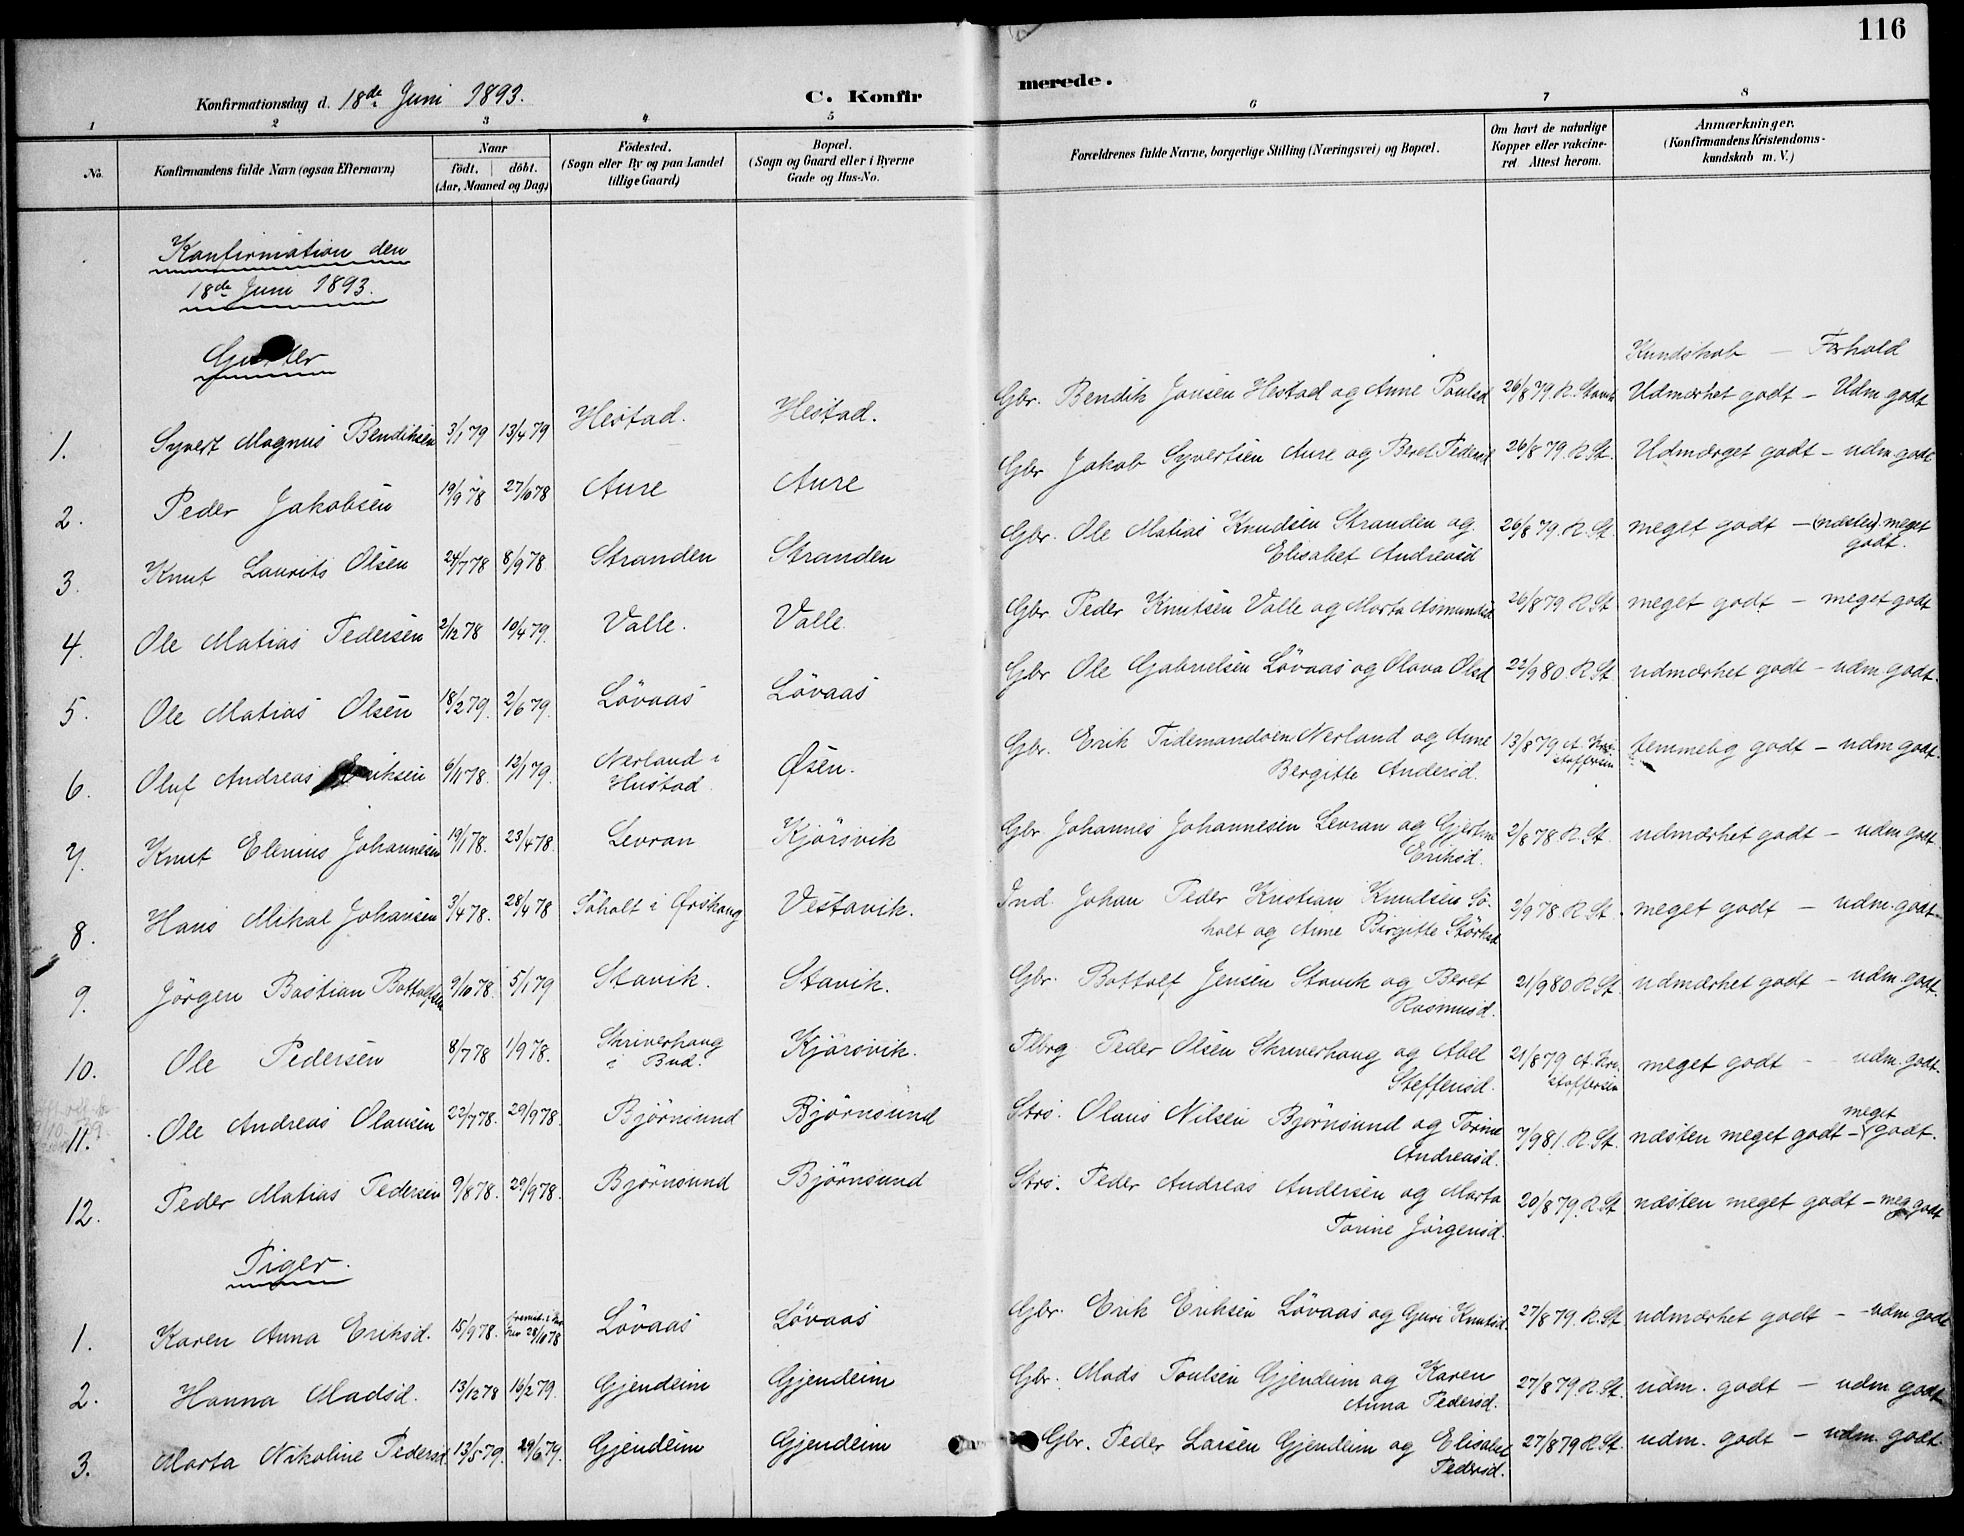 116
Konfirmationsdag d. 18de Juni 1893. C. Konfirmerede.
1 2 3 4 5 6 7 8
No. Konfirmandens fulde Navn (ogsaa Efternavn) Naar födt. döbt. (Aar, Maaned og Dag) Födested. (Sogn eller By og paa Landet tillige Gaard) Bopæl. (Sogn og Gaard eller i Byerne Gade og Hus-No. Forældrenes fulde Navne, borgerlige Stilling (Næringsvei) og Bopæl. Om havt de naturlige Kopper eller vakcineret Attest herom. Anmærkninger. (Konfirmandens Kristendomskundskab m. V.)
Konfirmation den
18de Juni 1893.
Gutter
Kundskab — Forhold
1. Syvert Magnus Bendiksen 3/1 79 13/4 79 Hestad. Hestad. Gbr. Bendik Jonsen Hestad og Anne Poulsd 26/8 79. R. Udmærket godt – Udm. godt
2. Peder Jakobsen 19/9 78 27/10 78 Aure Aure Gbr Jakob Syvertsen Aure og Beret Pedersd 26/8 79. R. St. Udmærget godt – udm. godt
3. Knut Laurits Olsen 24/7 78 8/9 78 Stranden Stranden Gbr. Ole Matias Knudsen Stranden og 26/8 79. R. St. meget godt – (næsten) meget
Elisabet Andreasd godt.
4. Ole Matias Pedersen 2/12 78 10/4 79. Valle. Valle Gbr. Peder Knutsen Valle og Marta Asmundsd 26/8 79 R. St meget godt – meget godt
5. Ole Matias Olsen 18/2 79. 2/6 79. Lövaas Lövaas Gbr Ole Gabrielsen Lövaas og Olava Olsd 22/9 80 R. St. udmærket godt – udm. godt.
6. Oluf Andreas Eriksen 6/11 78. 12/1 79. Nerland i Øsen. Gbr. Erik Tidemandsen Nerland og Anne 13/8 79 A. Kri- temmelig godt – udm. godt.
Hustad Bergitte Andersd. stoffersen
7. Knut Elenius Johannesen 19/1 78. 23/4 78. Levran Kjörsvik Gbr Johannes Johannesen Levran og Gjertine 2/8 78 R. St. udmærket godt – udm. godt.
Eriksd.
8. Hans Mikal Johansen 3/4 78. 28/4 78 Söholt i Ørskoug Vestavik. Ind. Johan Peder Kristian Knudsen Sö- 2/9 78 R. St. meget godt – udm. godt
holt og Anne Birgitte
9. Jörgen Bastian Bottolfsen 9/10 78. 5/1 79 Stavik. Stavik. Gbr. Bottolf Jensen Stavik og Beret 21/9 80 R. St. udmærket godt – udm. godt.
Rasmusd.
10. Ole Pedersen 8/7 78 1/9 78. Skriverhoug Kjörsvik. Peder Olsen Skriverhoug og Abel 21/8 79 A. Kri- meget godt – udm. godt.
i Bud. Steffensd. stoffersen
11. Ole Andreas Olausen 22/7 78. 29/9 78. Björnsund Björnsund Strs. Olaus Nilsen Björnsund og Torine 7/9 81. R. St. næsten meget godt – meget godt.
Andreasd.
12. Peder Matias Pedersen 9/8 78. 29/9 78. Björnsund Björnsund Strs. Peder Andreas Andersen og Marta 20/8 79. R. St næsten meget godt – meg. godt
Torine Jörgensd.
Piger.
1. Karen Anna Eriksd. 15/9 78. 28/10 78 Lövaas Lövaas Gbr. Erik Eriksen Lövaas og Guri Knutsd. 27/8 79. R. St. udmærket godt – udm. godt
2. Hanna Madsd. 13/12 78 16/2 79. Gjendeim Gjendeim Gbr. Mads Poulsen Gjendeim og Karen 27/8 79 R. St. udm. godt – udm. godt
Anna Pedersd.
3. Marta Nikoline Pedersd 13/5 79. 29/6 79. Gjendeim Gjendeim Gbr. Peder Larsen Gjendeim og Elisabet 27/8 79 R. St. udm. godt – udm. godt.
Pedersd.